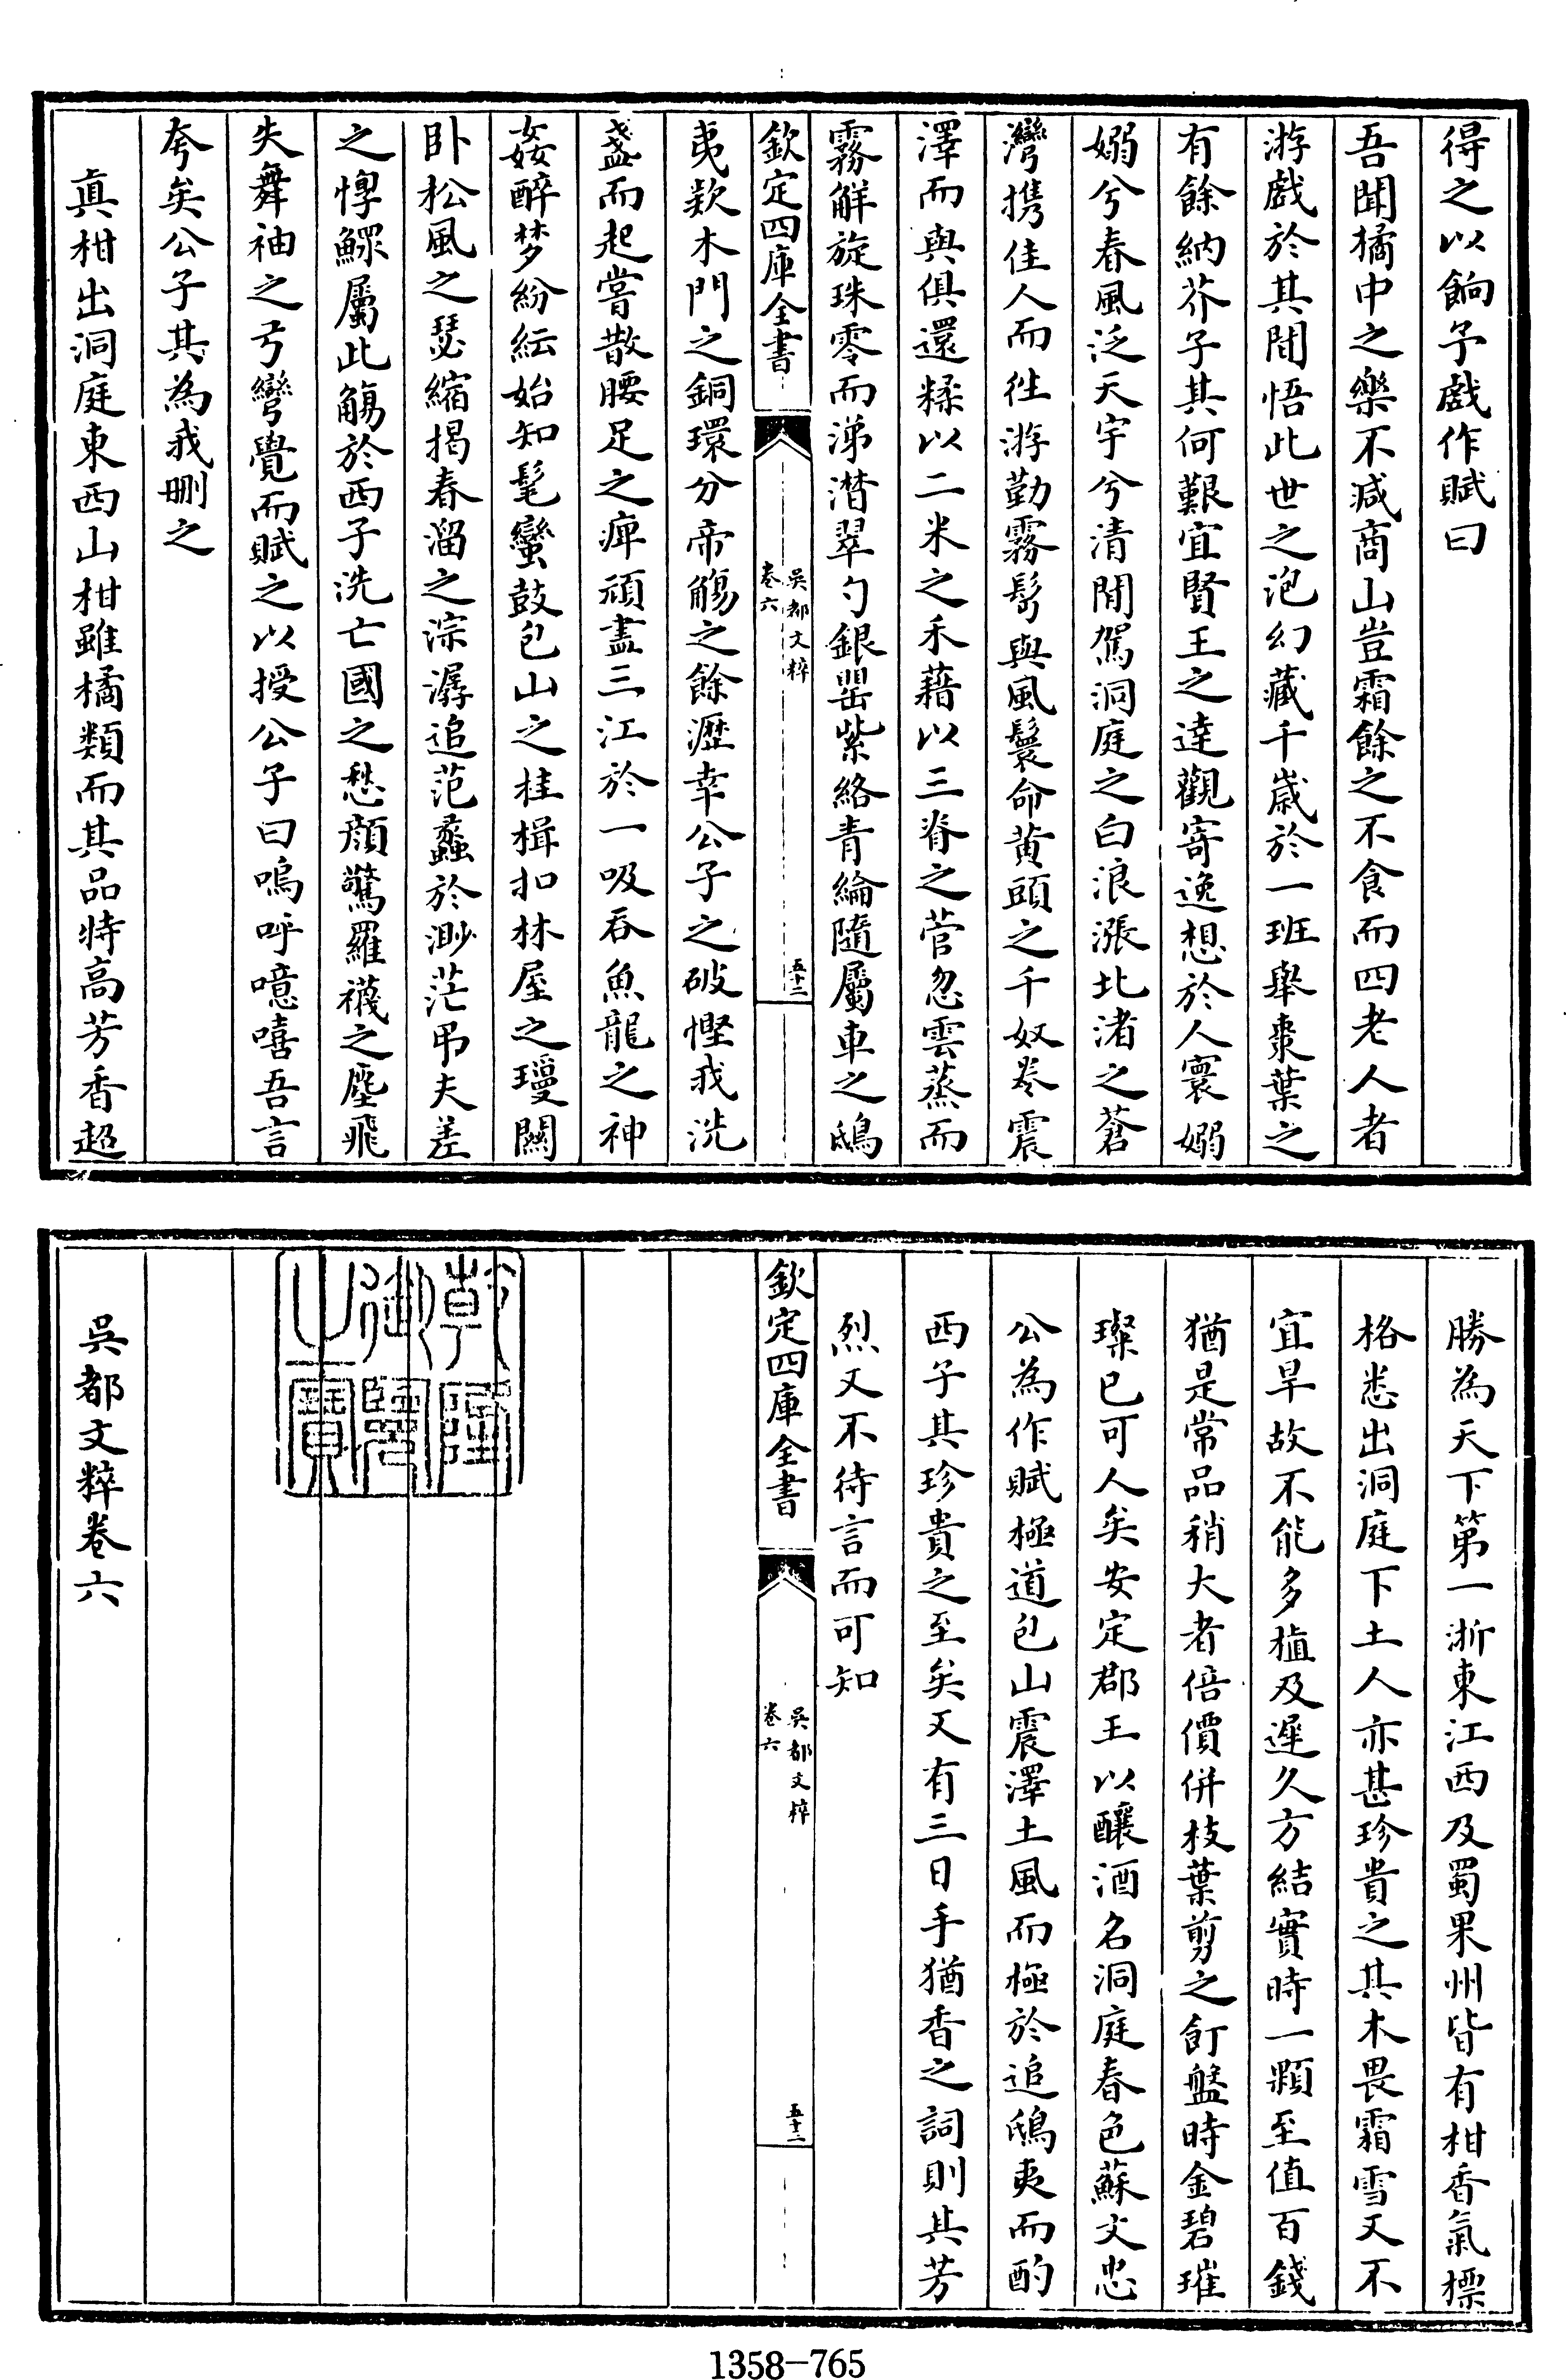 得之以餉予戲作賦曰
吾聞橘中之樂不減商山豈霜餘之不食而四老人者
游戲於其間悟此世之泡幻藏千嵗於一班舉棗葉之
有餘納芥子其何艱宜賢王之達觀寄逸想於人寰嫋
嫋兮春風泛天宇兮清閒駕洞庭之白浪漲北渚之蒼
灣攜佳人而徃游勤霧鬂與風鬟命黄頭之千奴卷震
澤而與俱還糅以二米之禾藉以三脊之菅忽雲蒸而
霧觧旋珠零而涕潸翠勺銀罌紫絡青綸隨屬車之鴟
欽定四庫全書
吳都文粹
卷六
五十二
夷欵木門之銅環分帝觴之餘瀝幸公子之破慳我洗
盞而起嘗散腰足之痺頑盡三江於一吸吞魚龍之神
姦醉夢紛紜始知髦蠻鼓包山之桂楫扣林屋之瓊關
卧松風之瑟縮揭春溜之淙潺追范蠡於渺茫弔夫差
之惸鰥屬此觴於西子洗亡國之愁顔驚羅襪之塵飛
失舞袖之弓彎覺而賦之以授公子曰嗚呼噫嘻吾言
夸矣公子其為我刪之
真柑出洞庭東西山柑雖橘類而其品特高芳香超
勝為天下第一浙東江西及蜀果州皆有柑香氣標
格悉出洞庭下土人亦甚珍貴之其木畏霜雪又不
宜旱故不能多植及遲久方結實時一顆至值百錢
猶是常品稍大者倍價併枝葉剪之飣盤時金碧璀
璨已可人矣安定郡王以釀酒名洞庭春色蘇文忠
公為作賦極道包山震澤土風而極於追鴟夷而酌
西子其珍貴之至矣又有三日手猶香之詞則其芳
烈又不待言而可知
欽定四庫全書
吳都文粹
卷六
五十二
乾隆御覽之寶
吳都文粹卷六
1358-765